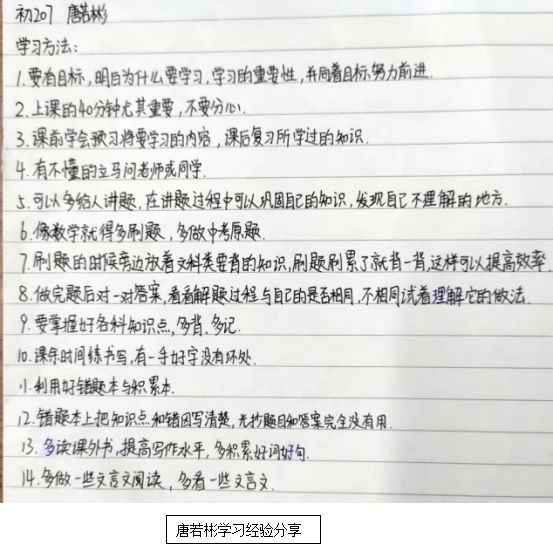 初207 唐若彬
学习方法：
1.要有目标，明白为什么要学习，学习的重要性，并向着目标努力前进.
2.上课的40分钟尤其重要，不要分心.
3.课前学会预习将要学习的内容，课后复习所学过的知识.
4.有不懂的立马问老师或同学.
5.可以多给人讲题，在讲题过程中可以巩固自己的知识，发现自己不理解的地方.
6.像数学就得多刷题，多做中考原题.
7.刷题的时候旁边放着文科类要背的知识，刷题刷累了就背一背，这样可以提高效率.
8.做完题后对一对答案，看看解题过程与自己的是否相同，不相同试着理解它的做法.
9.要掌握好各科知识点，多背、多记.
10.课余时间练书写，有一手好字没有坏处.
11.利用好错题本与积累本.
12.错题本上把知识点和错因写清楚，光抄题目和答案完全没有用.
13.多读课外书，提高写作水平，多积累好词好句.
14.多做一些文言文阅读，多看一些文言文.
唐若彬学习经验分享